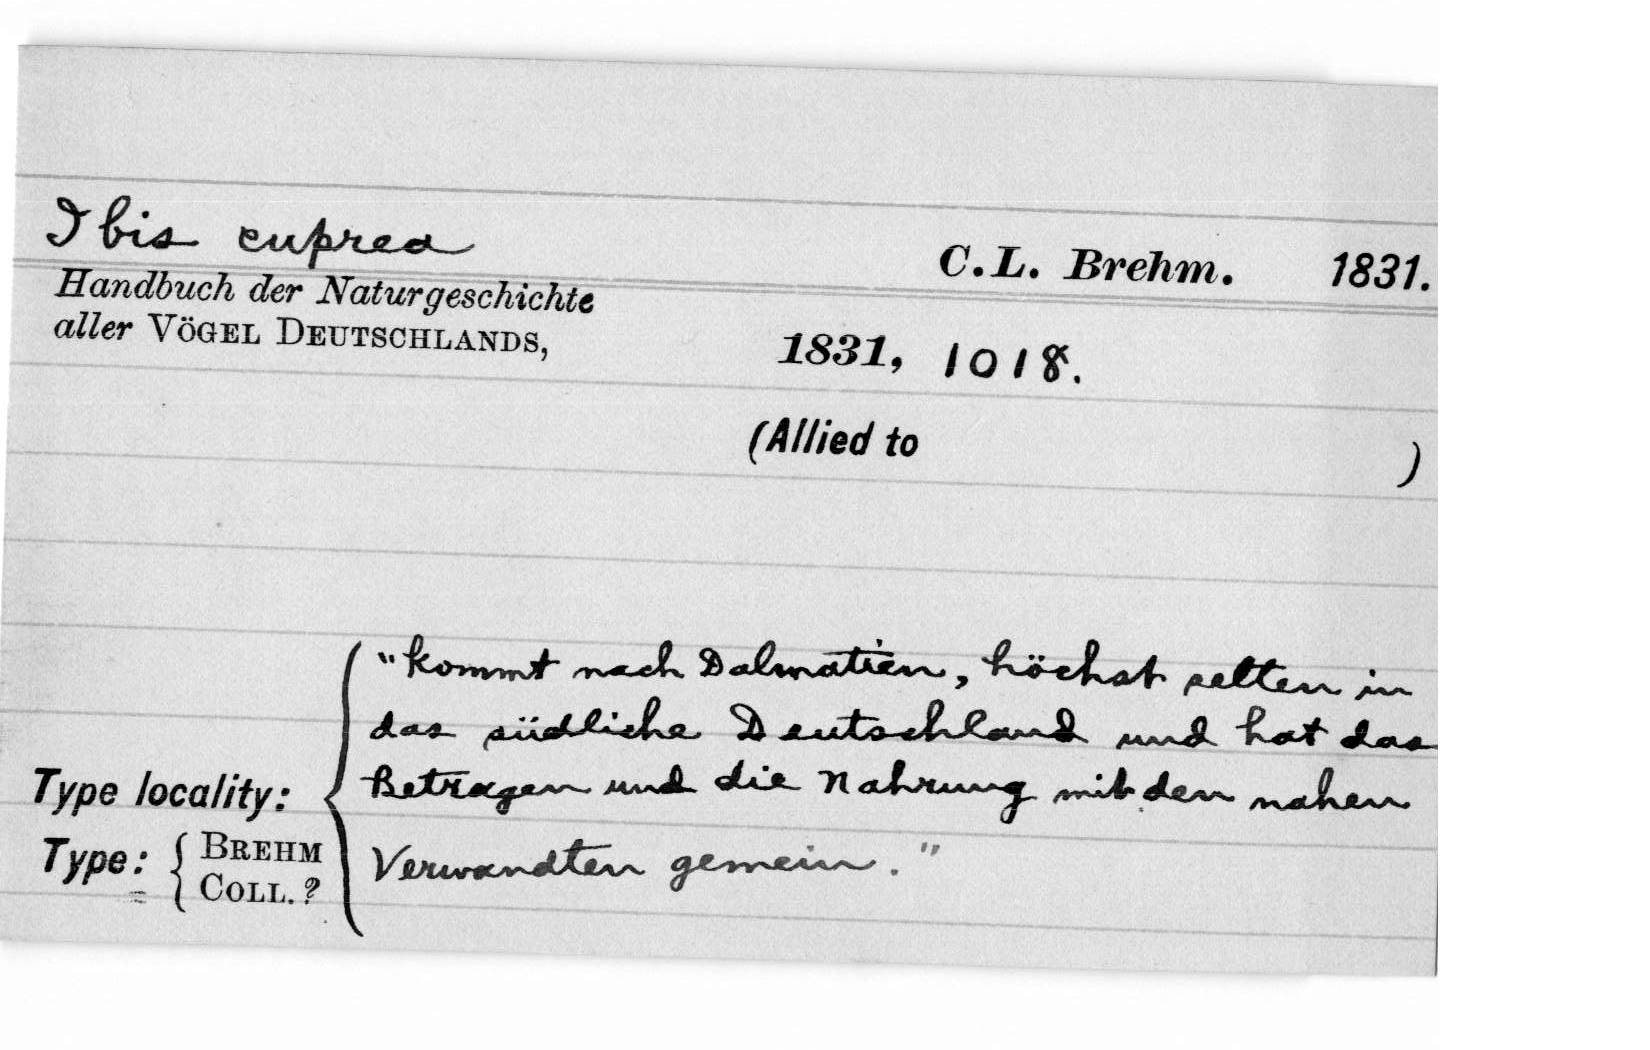 Ibis cuprea
C.L. Brehm. 1831.
Handbuch der Naturgeschichte
aller VÖGEL DEUTSCHLANDS,
1831, 1018.
(Allied to )
"kommt nach Dalmatien, höchst selten in
das südliche Deutschland und hat das
Betragen und die Nahrung mit den nahen
Verwandten gemein."
Type locality:
Type: { BREHM
COLL. ?